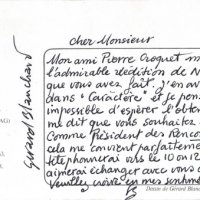 cher Monsieur
Mon ami Pierre Croquet m
l'admirable réédition de N
que vous avez fait, j'en av
dans "Caractère" et je pens
impossible d'espérer l'obten
me dit que vous souhaitez
Comme Président des Rencon
cela me convient parfaiteme
téléphonerai vers le 10 ou 12
aimerai échanger avec vous
Veuillez croire en mes sentime
Gérard Blanchard
Dessin de Gérard Blanc